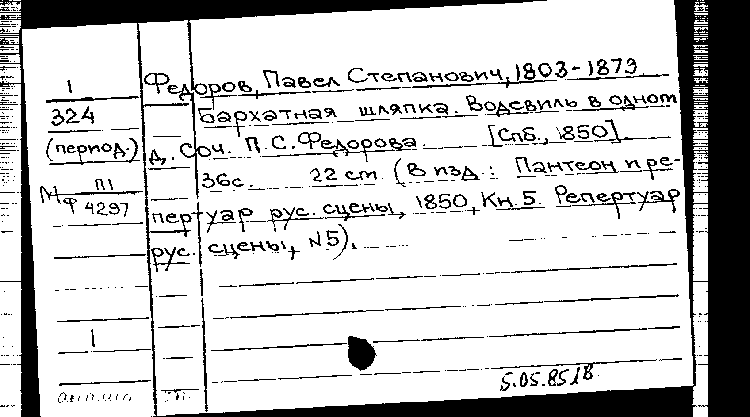 1
324
(период.)
М П1
Ф 4297
1
Федоров, Павел Степанович, 1803-1879
Бархатная шляпка. Водевиль в одном
д. Соч. П.С.Федорова. [Спб., 1850].
36с. 22 cm (В изд.: Пантеон и ре-
пертуар рус. сцены, 1850, Кн. 5. Репертуар
рус. сцены, №5).
5.05.85